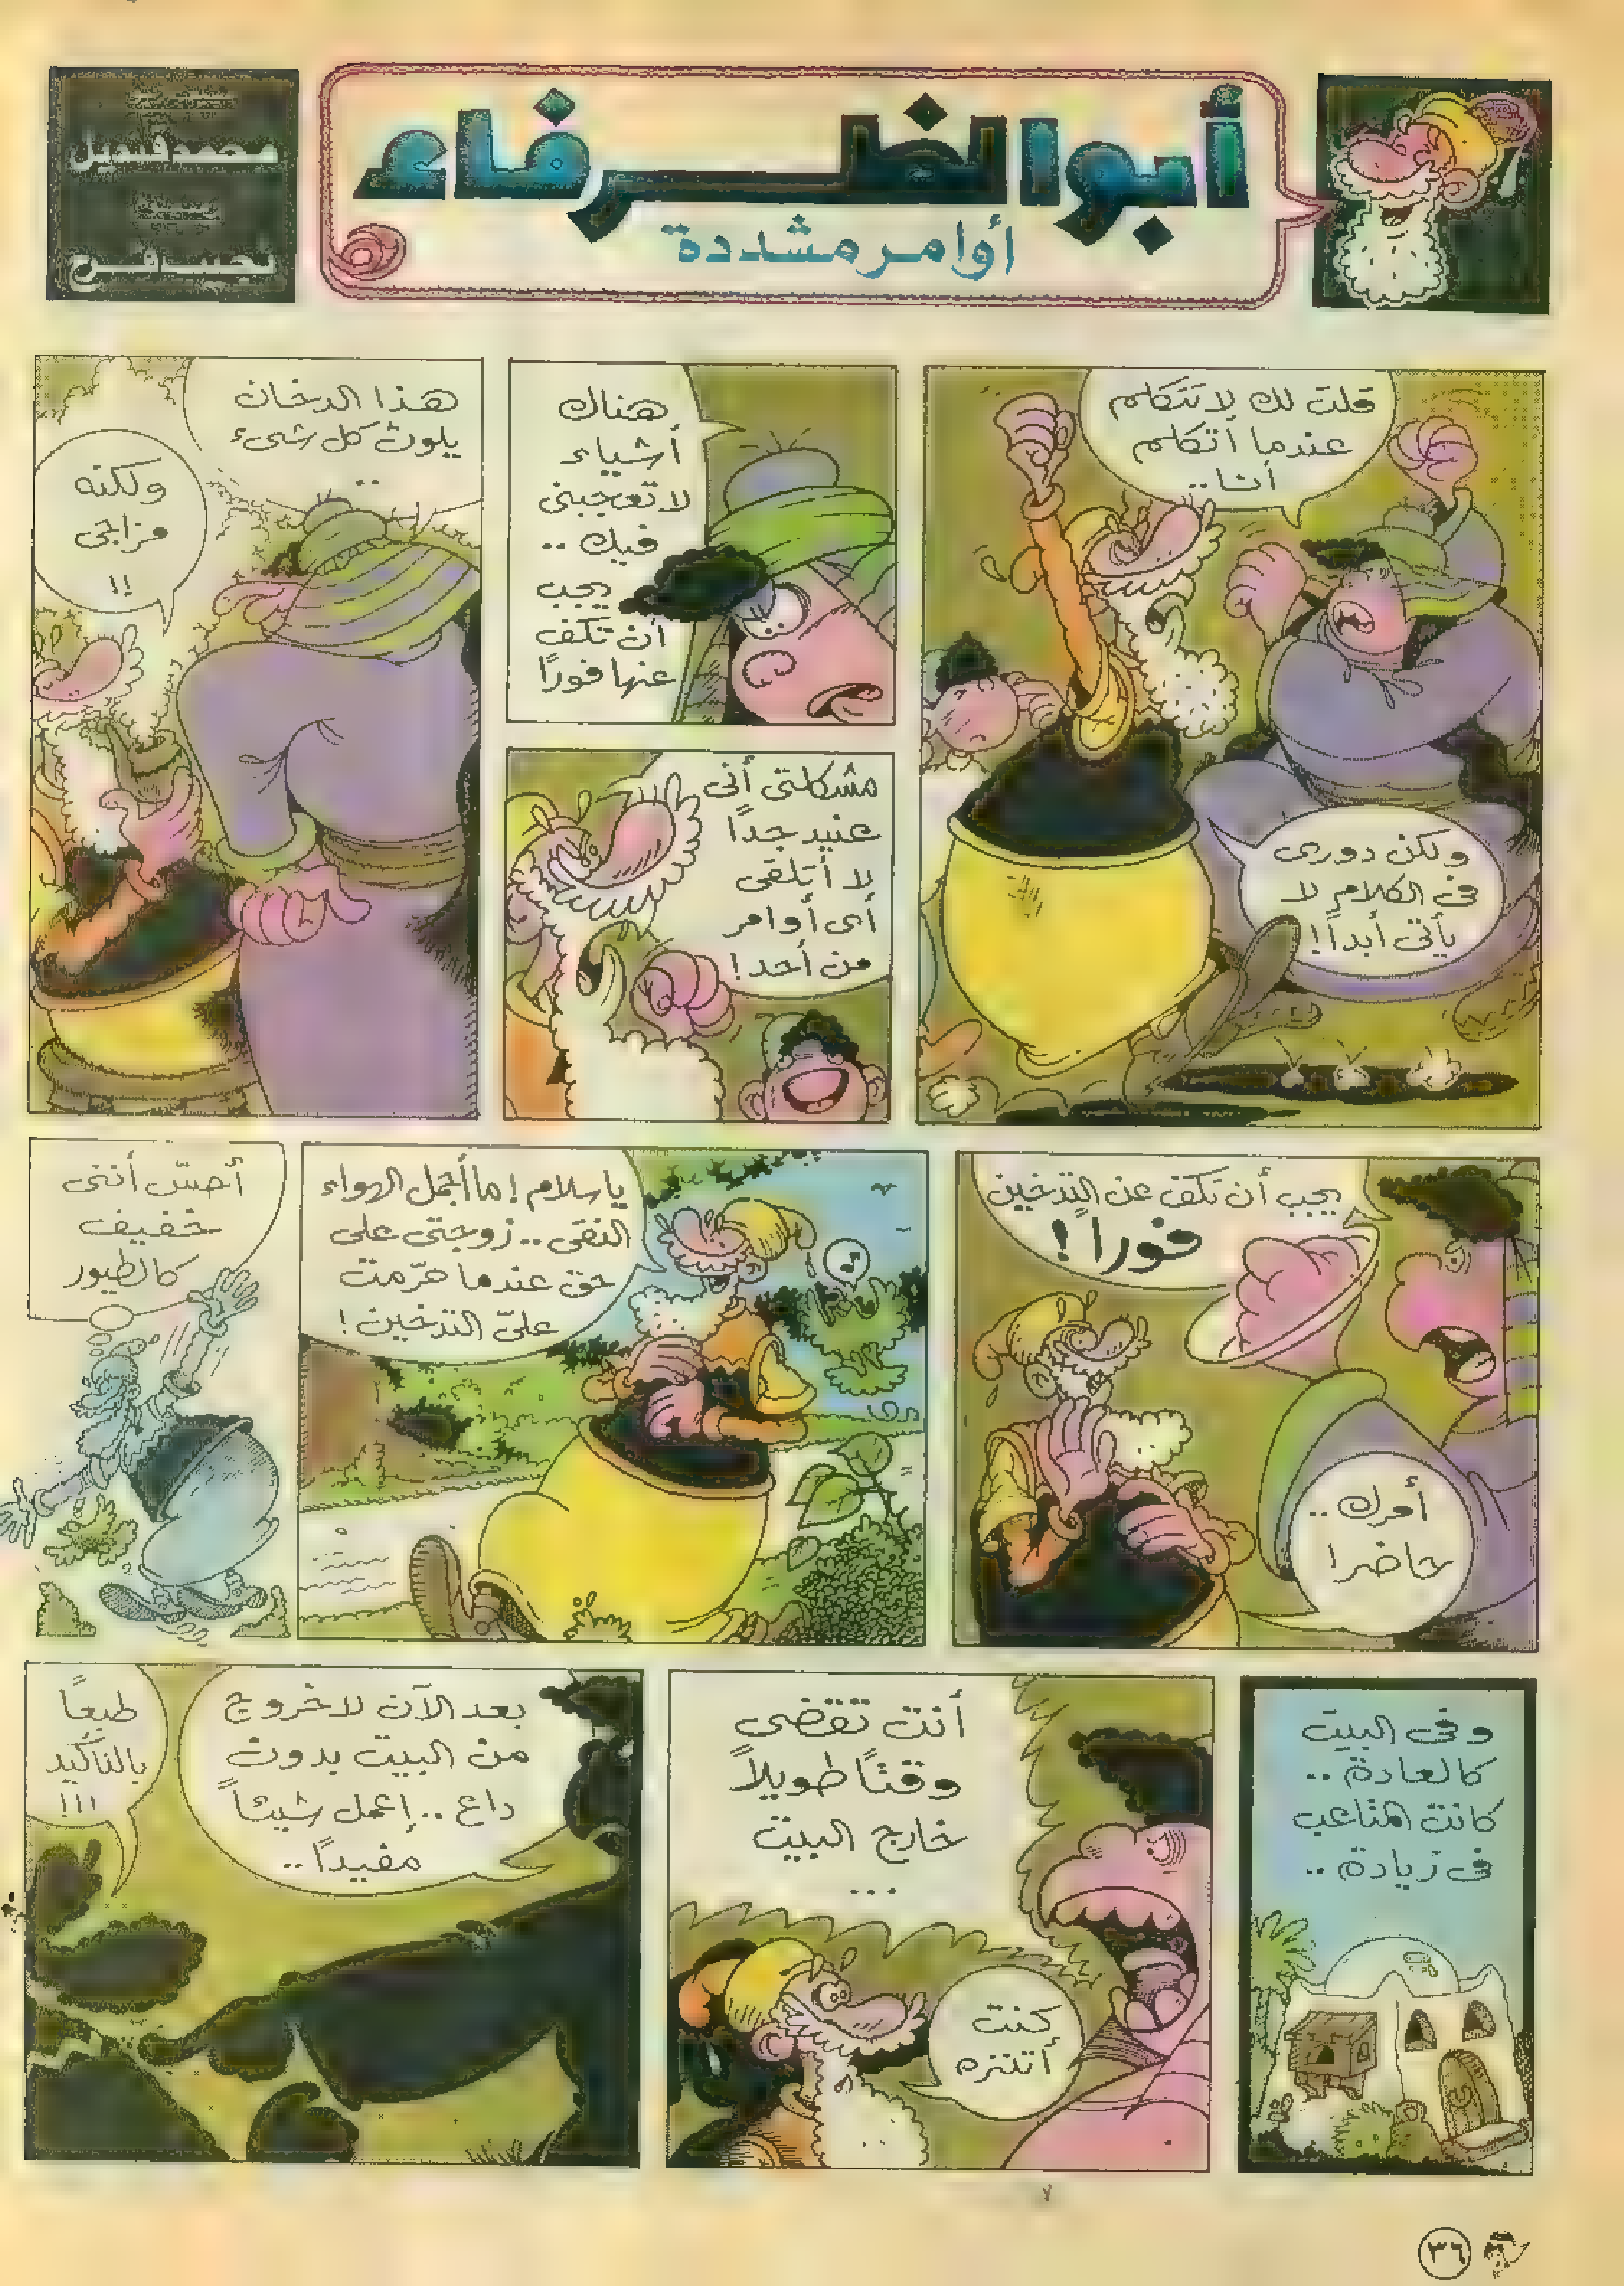 أبو الظرفاء
أوامر مشددة
قلت لك لا تتكلم
عندما أتكلم
أنا..
ولكن دورى
فى الكلام لا
يأتى أبداً!
هناك
أشياء
لا تعجبنى
فيك ..
يجب
أن تكف
عنها فوراً
مشكلتى أنى
عنيد جداً
لا أتلقى
أى أوامر
من أحد!
هذا الدخان
يلوث كل شىء
..
ولكنه
مزاجى
!!
يجب أن تكف عن التدخين
فوراً!
أمرك ..
حاضر!
يا سلام! ما أجمل الهواء
النقى .. زوجتى على
حق عندما حرّمت
علىّ التدخين!
أحسّ أننى
خفيف
كالطيور
وفى البيت
كالعادة ..
كانت المتاعب
فى زيادة ..
أنت تقضى
وقتاً طويلاً
خارج البيت
...
كنت
أتنزه
بعد الآن لا خروج
من البيت بدون
داع .. إعمل شيئاً
مفيداً ..
طبعاً
بالتأكيد
!!!
٣٦